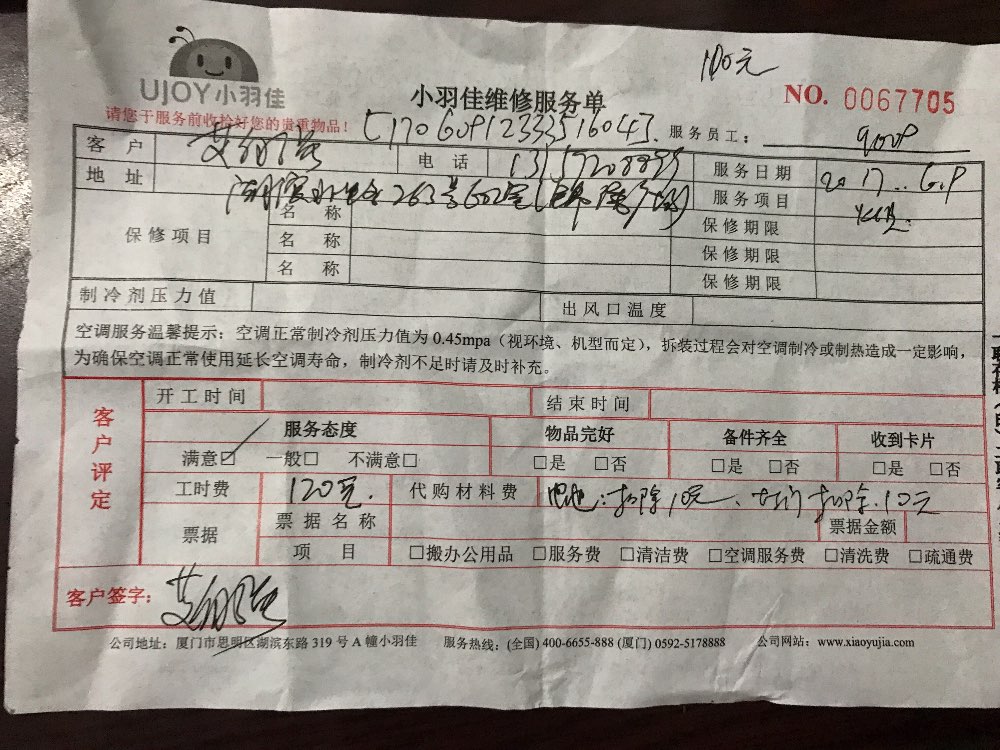 100元
UJOY小羽佳
小羽佳维修服务单
NO. 0067705
请您于服务前收拾好您的贵重物品!
服务员工:
客户 电话 服务日期 2017..
地址 263号602室 服务项目
保修项目 名称 保修期限
名称 保修期限
名称 保修期限
制冷剂压力值 出风口温度
空调服务温馨提示:空调正常制冷剂压力值为0.45mpa(视环境、机型而定),拆装过程会对空调制冷或制热造成一定影响,
为确保空调正常使用延长空调寿命,制冷剂不足时请及时补充。
客户评定
开工时间 结束时间
服务态度 物品完好 备件齐全 收到卡片
满意□ 一般□ 不满意□ □是 □否 □是 □否 □是 □否
工时费 120元. 代购材料费 扣除10元、扣除10元
票据 票据名称 票据金额
项目 □搬办公用品 □服务费 □清洁费 □空调服务费 □清洗费 □疏通费
客户签字:
公司地址:厦门市思明区湖滨东路319号A幢小羽佳 服务热线:(全国)400-6655-888(厦门)0592-5178888 公司网站:www.xiaoyujia.com